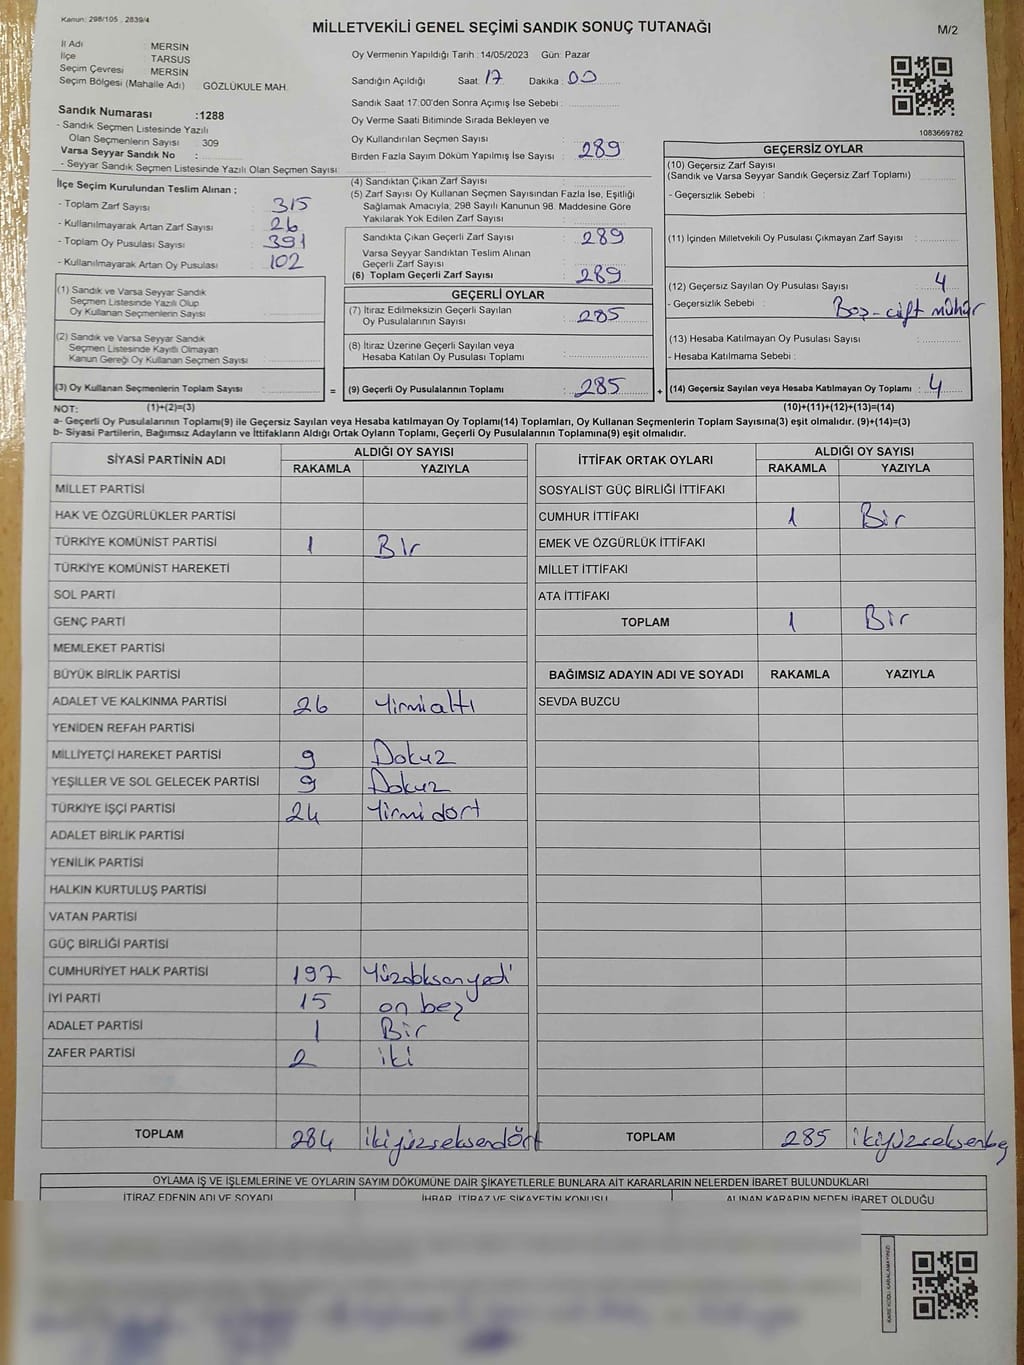 Kanun: 298/105 , 2839/4
MİLLETVEKİLİ GENEL SEÇİMİ SANDIK SONUÇ TUTANAĞI
M/2
İl Adı : MERSIN
İlçe TARSUS
Seçim Çevresi MERSIN
Seçim Bölgesi (Mahalle Adı) : GÖZLÜKULE MAH.
Sandık Numarası :1288
- Sandık Seçmen Listesinde Yazılı
Olan Seçmenlerin Sayısı : 309
Varsa Seyyar Sandık No :
- Seyyar Sandık Seçmen Listesinde Yazılı Olan Seçmen Sayısı:
Oy Vermenin Yapıldığı Tarih : 14/05/2023 Gün: Pazar
Sandığın Açıldığı Saat: 17 Dakika : 00
Sandık Saat 17:00'den Sonra Açımış İse Sebebi :
Oy Verme Saati Bitiminde Sırada Bekleyen ve
Oy Kullandırılan Seçmen Sayısı :
Birden Fazla Sayım Döküm Yapılmış İse Sayısı : 289
1083669782
İlçe Seçim Kurulundan Teslim Alınan ;
- Toplam Zarf Sayısı : 315
- Kullanılmayarak Artan Zarf Sayısı : 26
- Toplam Oy Pusulası Sayısı : 391
- Kullanılmayarak Artan Oy Pusulası : 102
(1) Sandık ve Varsa Seyyar Sandık
Seçmen Listesinde Yazılı Olup
Oy Kullanan Seçmenlerin Sayısı :
(2) Sandık ve Varsa Seyyar Sandık
Seçmen Listesinde Kayıtlı Olmayan
Kanun Gereği Oy Kullanan Seçmen Sayısı :
(3) Oy Kullanan Seçmenlerin Toplam Sayısı : =
(4) Sandıktan Çıkan Zarf Sayısı :
(5) Zarf Sayısı Oy Kullanan Seçmen Sayısından Fazla İse, Eşitliği
Sağlamak Amacıyla, 298 Sayılı Kanunun 98. Maddesine Göre
Yakılarak Yok Edilen Zarf Sayısı :
Sandıkta Çıkan Geçerli Zarf Sayısı : 289
Varsa Seyyar Sandıktan Teslim Alınan
Geçerli Zarf Sayısı :
(6) Toplam Geçerli Zarf Sayısı : 289
GEÇERLİ OYLAR
(7) İtiraz Edilmeksizin Geçerli Sayılan
Oy Pusulalarının Sayısı : 285
(8) İtiraz Üzerine Geçerli Sayılan veya
Hesaba Katılan Oy Pusulası Toplamı :
(9) Geçerli Oy Pusulalarının Toplamı : 285 +
GEÇERSİZ OYLAR
(10) Geçersiz Zarf Sayısı
(Sandık ve Varsa Seyyar Sandık Geçersiz Zarf Toplamı) :
- Geçersizlik Sebebi :
(11) İçinden Milletvekili Oy Pusulası Çıkmayan Zarf Sayısı :
(12) Geçersiz Sayılan Oy Pusulası Sayısı : 4
- Geçersizlik Sebebi : Boş-çift mühür
(13) Hesaba Katılmayan Oy Pusulası Sayısı :
- Hesaba Katılmama Sebebi :
(14) Geçersiz Sayılan veya Hesaba Katılmayan Oy Toplamı : 4
NOT: (1)+(2)=(3) (10)+(11)+(12)+(13)=(14)
a- Geçerli Oy Pusulalarının Toplamı(9) ile Geçersiz Sayılan veya Hesaba katılmayan Oy Toplamı(14) Toplamları, Oy Kullanan Seçmenlerin Toplam Sayısına(3) eşit olmalıdır. (9)+(14)=(3)
b- Siyasi Partilerin, Bağımsız Adayların ve İttifakların Aldığı Ortak Oyların Toplamı, Geçerli Oy Pusulalarının Toplamına(9) eşit olmalıdır.
SİYASİ PARTİNİN ADI ALDIĞI OY SAYISI
RAKAMLA YAZIYLA
MİLLET PARTİSİ
HAK VE ÖZGÜRLÜKLER PARTİSİ
TÜRKİYE KOMÜNİST PARTİSİ 1 Bir
TÜRKİYE KOMÜNİST HAREKETİ
SOL PARTİ
GENÇ PARTİ
MEMLEKET PARTİSİ
BÜYÜK BİRLİK PARTİSİ
ADALET VE KALKINMA PARTİSİ 26 Yirmialtı
YENİDEN REFAH PARTİSİ
MİLLİYETÇİ HAREKET PARTİSİ 9 Dokuz
YEŞİLLER VE SOL GELECEK PARTİSİ 9 Dokuz
TÜRKİYE İŞÇİ PARTİSİ 24 Yirmi dört
ADALET BİRLİK PARTİSİ
YENİLİK PARTİSİ
HALKIN KURTULUŞ PARTİSİ
VATAN PARTİSİ
GÜÇ BİRLİĞİ PARTİSİ
CUMHURİYET HALK PARTİSİ 197 Yüzdoksanyedi
İYİ PARTİ 15 on beş
ADALET PARTİSİ 1 Bir
ZAFER PARTİSİ 2 iki
TOPLAM 284 ikiyüzseksendört
İTTİFAK ORTAK OYLARI ALDIĞI OY SAYISI
RAKAMLA YAZIYLA
SOSYALİST GÜÇ BİRLİĞİ İTTİFAKI
CUMHUR İTTİFAKI 1 Bir
EMEK VE ÖZGÜRLÜK İTTİFAKI
MİLLET İTTİFAKI
ATA İTTİFAKI
TOPLAM 1 Bir
BAĞIMSIZ ADAYIN ADI VE SOYADI RAKAMLA YAZIYLA
SEVDA BUZCU
TOPLAM 285 ikiyüzseksenbeş
OYLAMA İŞ VE İŞLEMLERİNE VE OYLARIN SAYIM DÖKÜMÜNE DAİR ŞİKAYETLERLE BUNLARA AİT KARARLARIN NELERDEN İBARET BULUNDUKLARI
İTİRAZ EDENİN ADI VE SOYADI İHBAR, İTİRAZ VE ŞİKAYETİN KONUSU ALINAN KARARIN NEDEN İBARET OLDUĞU
KARE KODU KARALAMAYINIZ!